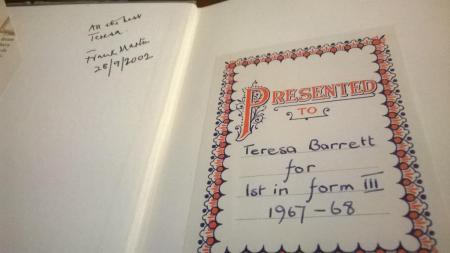 All the best
Teresa.
—
Frank
28/9/2002
PRESENTED
TO
Teresa Barrett
for
1st in form III
1967-68